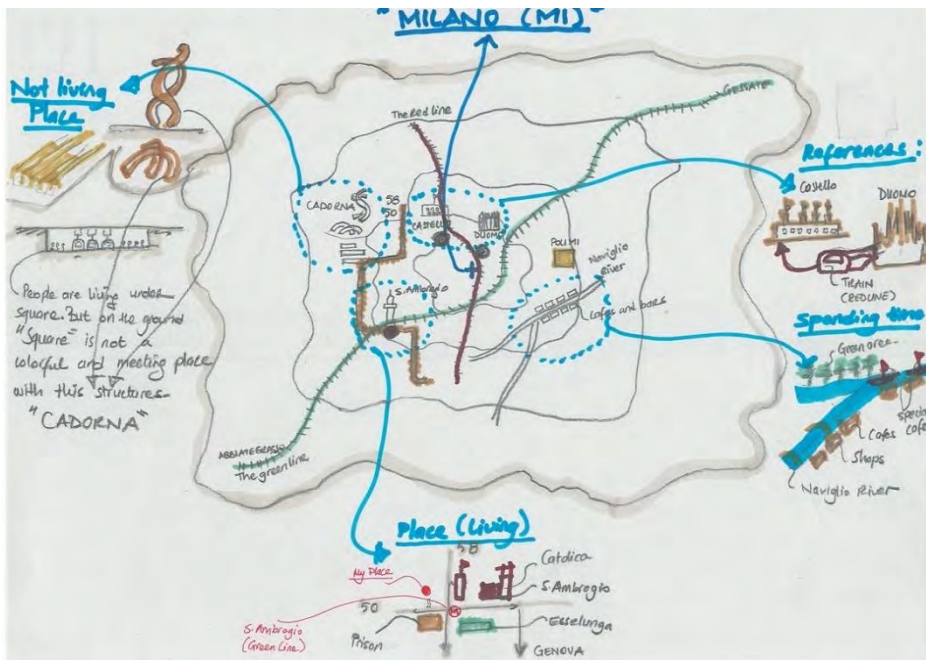 "MILANO (MI)"
Not living
Place
People are living under
square. But on the ground
"Square" is not a
colorful and meeting place
with this structures-
"CADORNA"
The Red line
GESSATE
CADORNA
58
50
CASTELLO
DUOMO
POLIMI
Naviglio
River
Cafes and bars
S. Ambrogio
ABBIATEGRASSO
The green line
References:
Castello
DUOMO
TRAIN
(REDLINE)
Spending time
Green area
Special
Cafes
Cafes
Shops
Naviglio River
Place (Living)
58
My Place
50
Catolica
S. Ambrogio
S. Ambrogio
(Green Line)
M
Prison
Esselunga
GENOVA